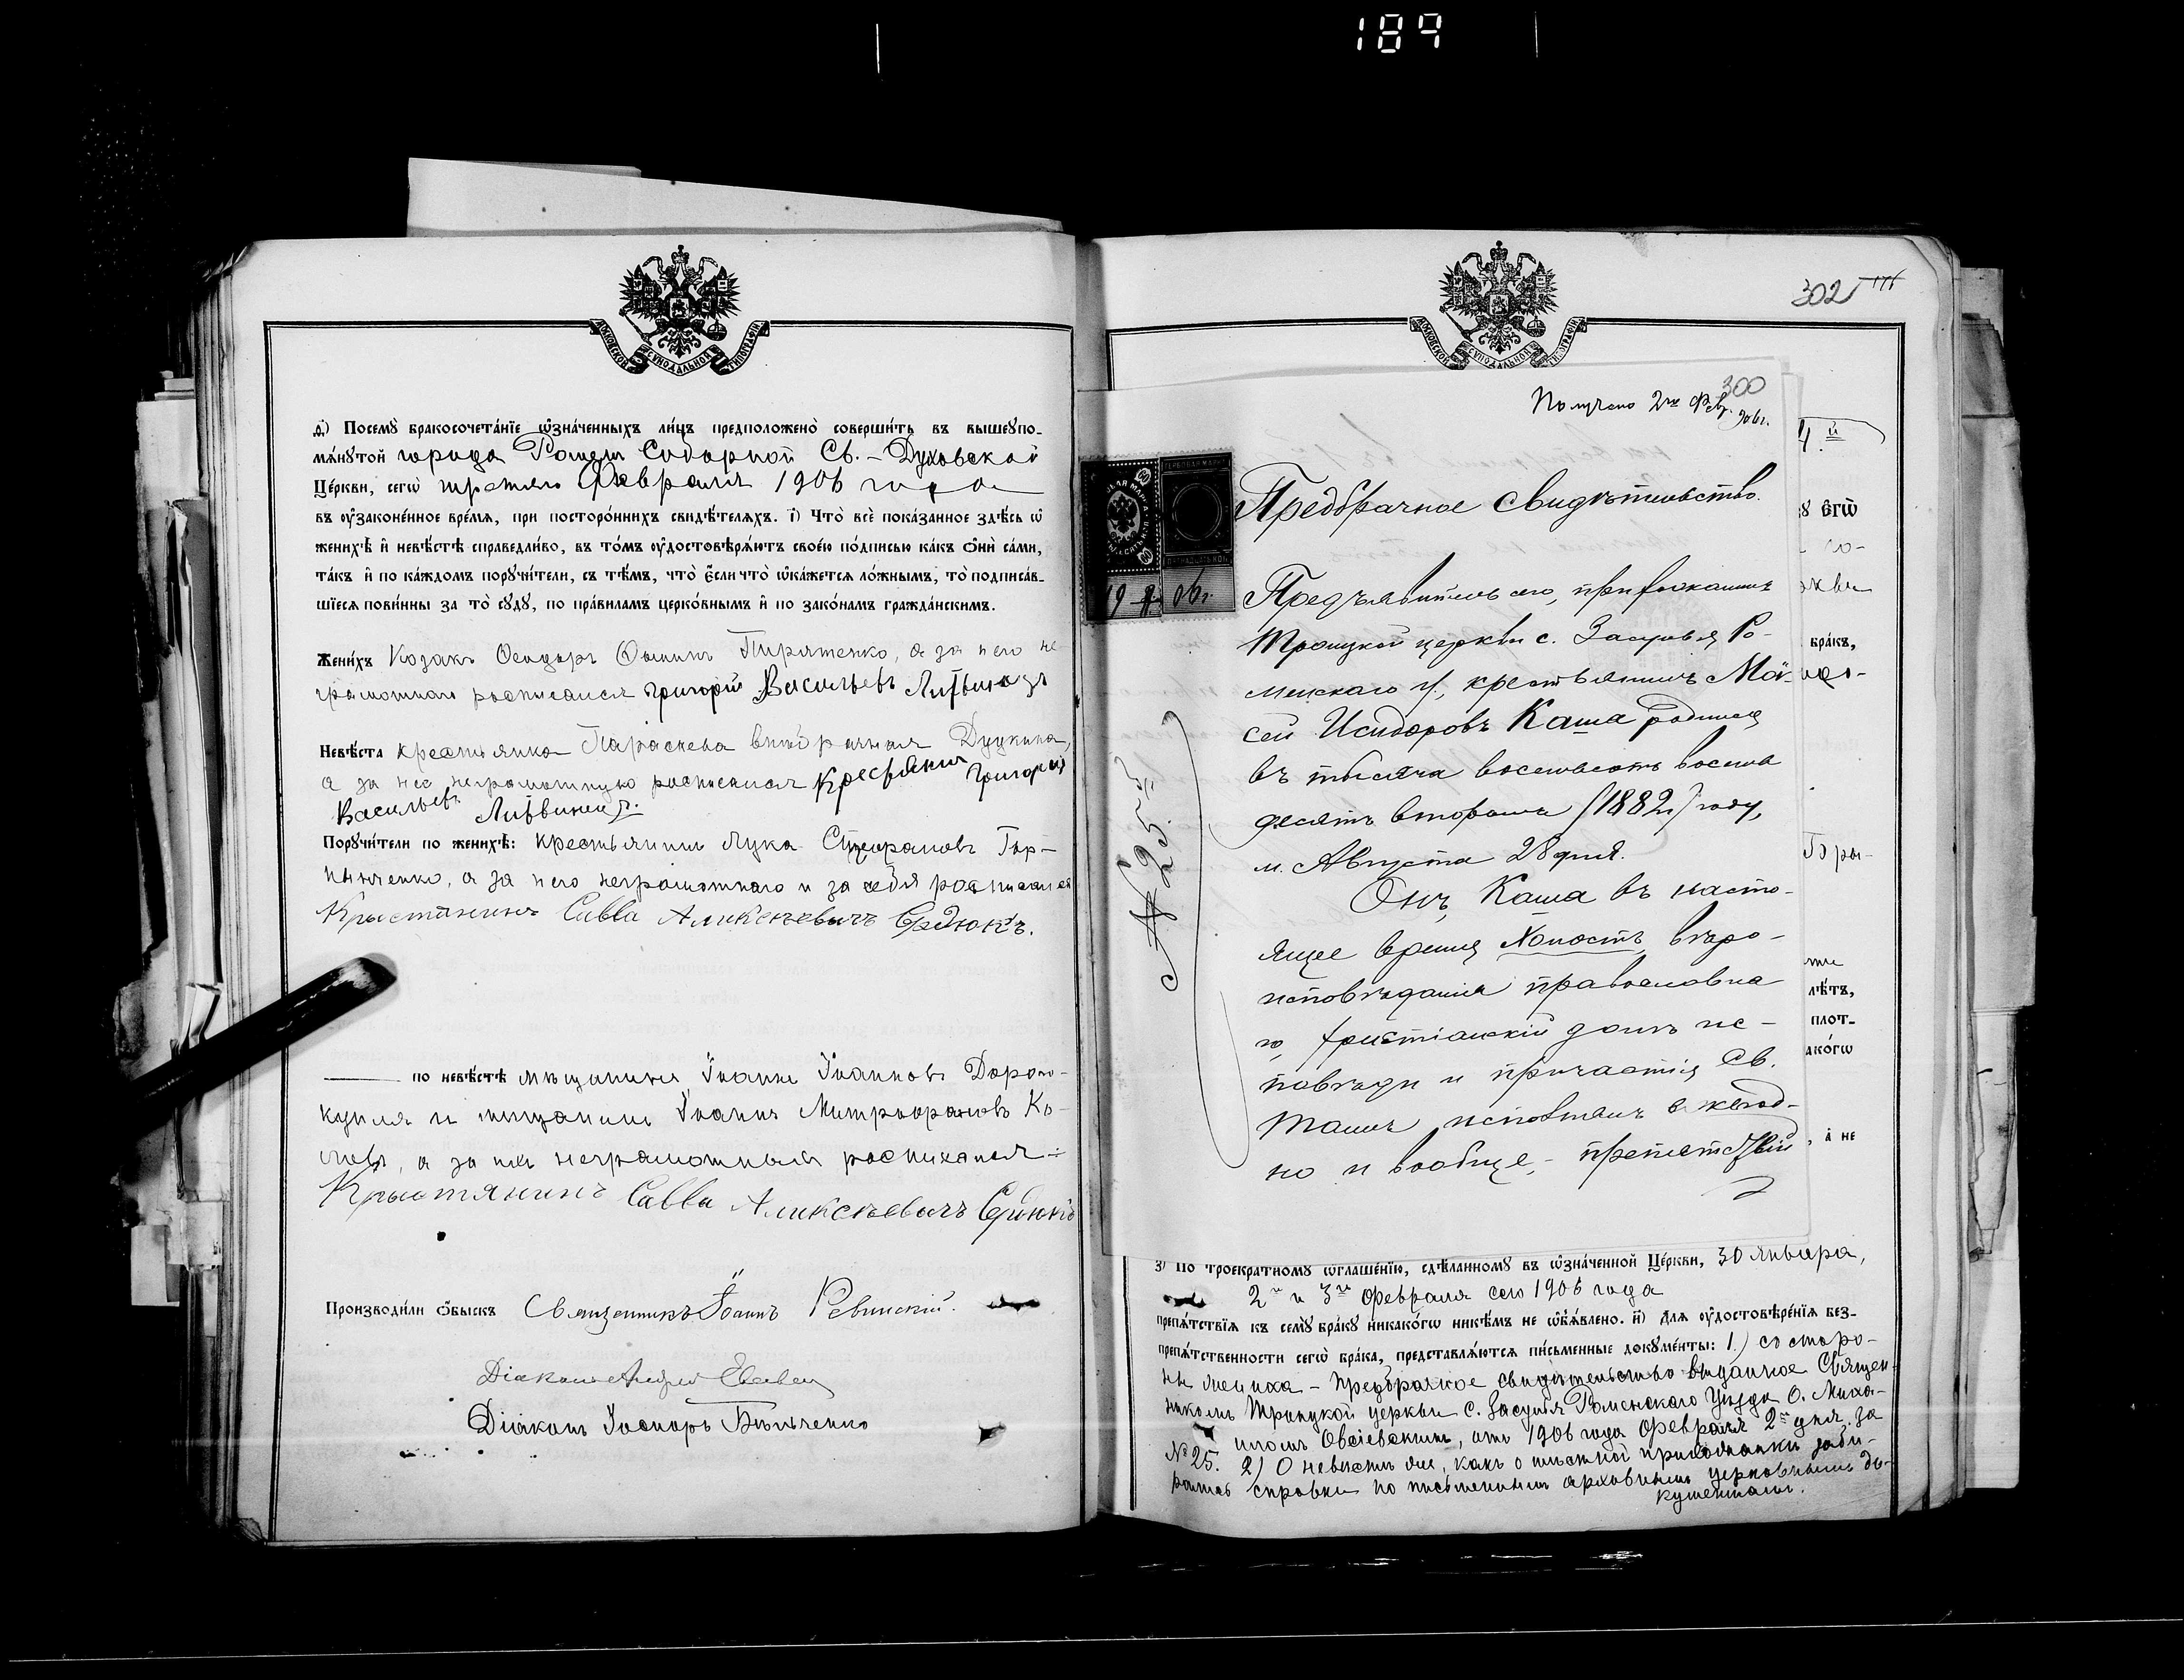 189
МОСКОВСКОЙ СѴНОДАЛЬНОЙ ТИПОГРАФІИ
ѳ҃) Посемꙋ̀ бракосочета́нїе ѡ҆зна́ченныхъ ли́цъ предположено̀ соверши́ть въ вышеꙋпо-
мѧ́нꙋтой города Ромен Соборной Св.-Духовской
Це́ркви, сегѡ̀ третьяго Февраля 1906 года
въ ᲂу҆зако́ненное вре́мѧ, при посторо́ннихъ свидѣ́телѧхъ. і҃) Что̀ всѐ пока́занное здѣ́сь ѡ҆
женихѣ̀ и҆ невѣ́стѣ справедли́во, въ то́мъ ᲂу҆достовѣрѧ́ютъ свое́ю по́дписью ка́къ ѻ҆нѝ са́ми,
та́къ и҆ по ка́ждомъ порꙋчи́тели, съ тѣ́мъ, что̀ є҆́сли что̀ ѡ҆ка́жетсѧ ло́жнымъ, то̀ подписа́в-
шїесѧ пови́нны за то̀ сꙋдꙋ̀, по пра́виламъ церко́внымъ и҆ по зако́намъ гражда́нскимъ.
Жени́хъ Козакъ Ѳеодоръ Ѳоминъ Пирятенко, а за него не
грамотнаго росписался Григорій Васильевъ Литвинецъ
Невѣ́ста крестьянка Параскева Дудкина,
а за нее неграмотную росписался Крестянин Григорій
Васильевъ Литвинецъ.
Порꙋчи́тели по женихѣ̀: крестьянинъ Лука Стефановъ Гор-
а за него неграмотнаго и за себя росписался
Крыстянинъ Савва Аликсѣевичъ Сердюкъ.
по невѣ́стѣ мѣщанинъ Іоаннъ Іоанновъ Дорого-
купля и мѣщанинъ Іоаннъ Митрофановъ Ко-
а за нихъ неграмотныхъ росписался:
Крыстянинъ Савва Аликсѣевичъ Сердюкъ
Производи́ли ѻ҆́быскъ Священникъ Іоаннъ Ревинскій.
Діаконъ Андрей
Діаконъ Іосифъ Бѣльченко
МОСКОВСКОЙ СѴНОДАЛЬНОЙ ТИПОГРАФІИ
302
300
Получено 2го Фев. 906 г.
Предбрачное свидѣтельство.
19 06 г.
№ 25й
Предъявитель сего, прихожанинъ
Троицкой церкви с. Засулья Ро-
менскаго у., крестьянинъ Мои-
сей Исидоровъ Каша родился
въ тысяча восемьсотъ восемь
десятъ второмъ (1882) году,
м. Августа 28 дня.
Онъ, Каша въ насто-
ящее время холостъ, вѣро-
исповѣданія православна
го, христіанскій долгъ ис-
повѣди и причастія Св.
Таинъ исполнялъ ежегод-
но и вообще, - препятствій
з҃) По троекра́тномꙋ ѡ҆глаше́нїю, сдѣ́ланномꙋ въ ѡ҆зна́ченной Це́ркви, 30 Января,
2го и 3го Февраля сего 1906 года
препѧ́тствїѧ къ семꙋ̀ бра́кꙋ никако́гѡ никѣ́мъ не ѡ҆б̾ѧ́влено. и҃) Длѧ ᲂу҆достовѣре́нїѧ без-
препѧ́тственности сегѡ̀ бра́ка, представлѧ́ютсѧ пи́сьменные докꙋме́нты: 1.) со сторо-
ны жениха - Предбрачное свидѣтельство выданное Священ-
никомъ Троицкой церкви с. Засулья Роменскаго Уѣзда О. Миха-
иломъ Овсіевскимъ, отъ 1906 года Февраля 2го дня за
№ 25. 2) О невѣстѣ же, какъ о мѣстной прихожанки заби-
рались справки по письменнымъ архивнымъ церковнымъ до-
кументамъ.